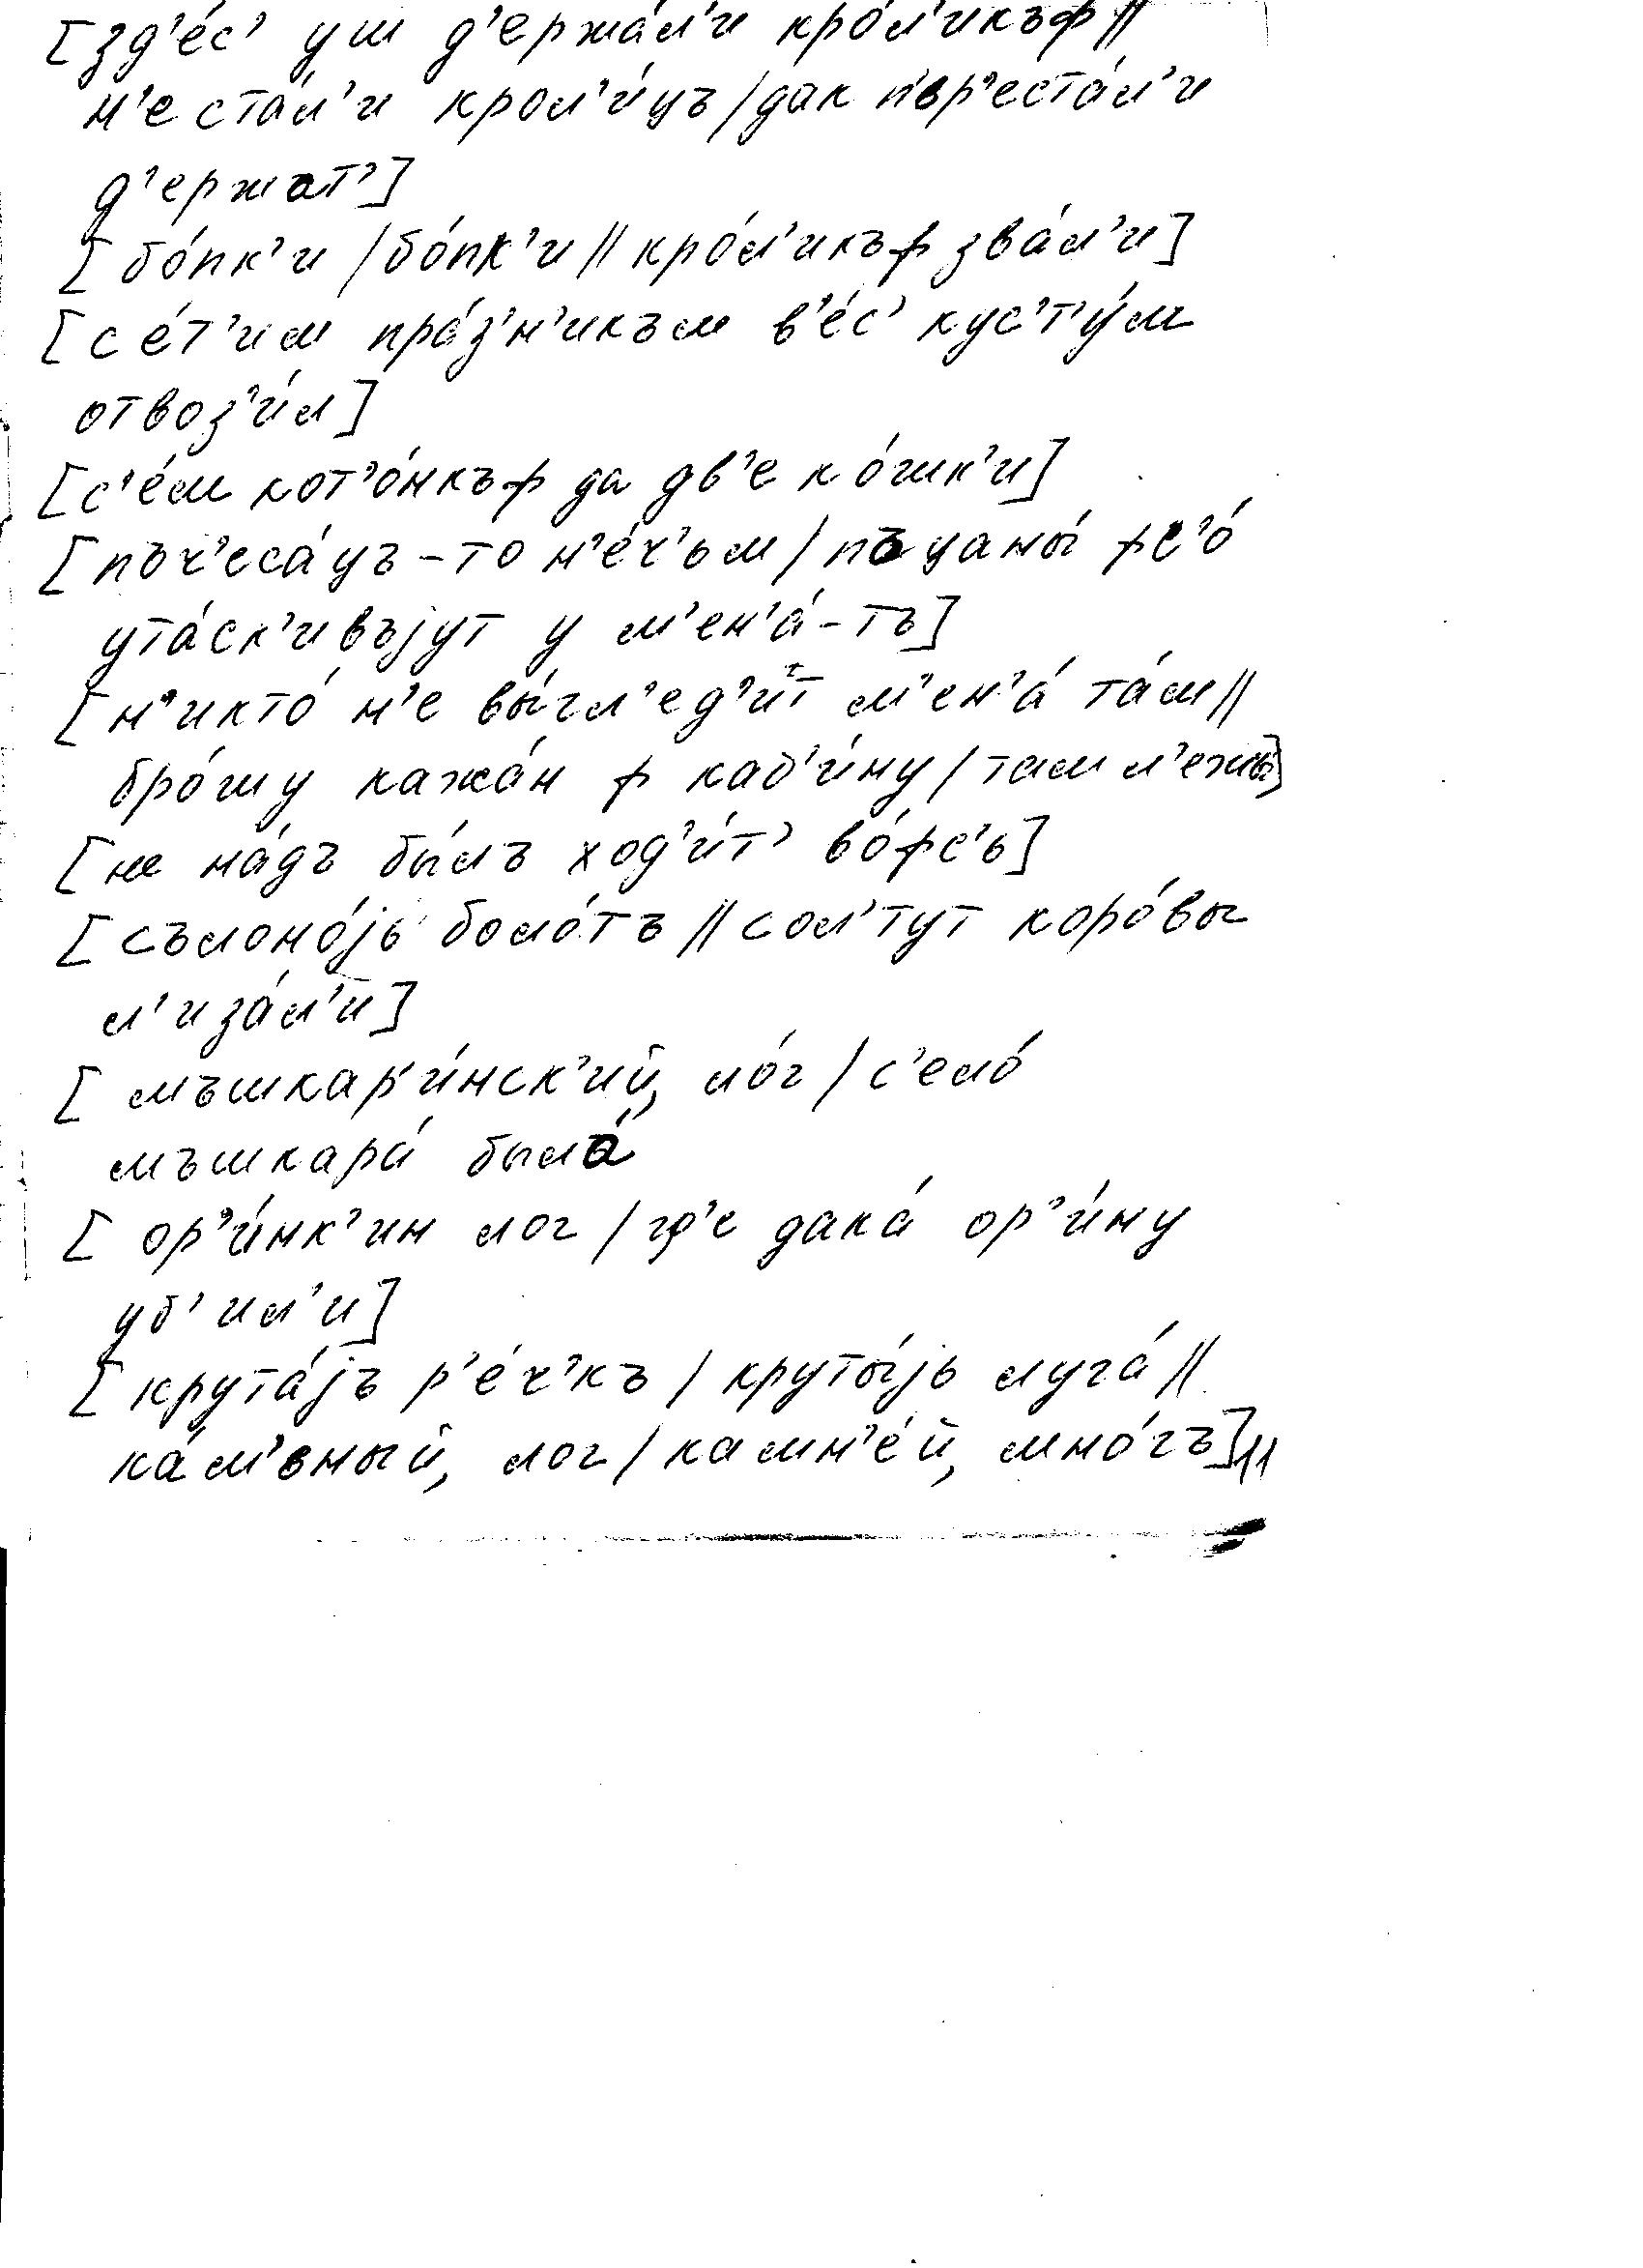 [зд'е́с' уш д'ержа́л'и кро́л'икъф//
н'е ста́л'и крол'и́цъ/дак п'ьр'еста́л'и
д'ержат']
[бо́пк'и/бо́пк'и//кро́л'икъф зва́л'и]
[с е́т'им пра́з'н'икъм в'е́с' кус'т'у́м
отвоз'и́л]
[с'е́м кот'о́нкъф да дв'е ко́шк'и]
[пъч'еса́цъ-то н'е́ч'ьм/пъцаны́ фс'о́
ута́ск'ивъjут у м'ен'а́-тъ]
[н'икто́ н'е вы́гл'ед'ит м'ен'а́ та́м//
бро́шу кажа́н ф каб'и́ну/там л'ежы́]
[не на́дъ бы́лъ ход'и́т' во́фс'ь]
[сълоно́jь боло́тъ//сол' тут коро́вы
л'иза́л'и]
[мъшкар'и́нск'ий, ло́г/с'ело́
мъшкара́ была́
[ор'и́нк'ин лог/гд'е дака́ ор'и́ну
уб'ил'и]
[крута́jъ р'е́ч'къ/круты́jь луга́//
ка́м'ьный, лог/камн'е́й, мно́гъ]//